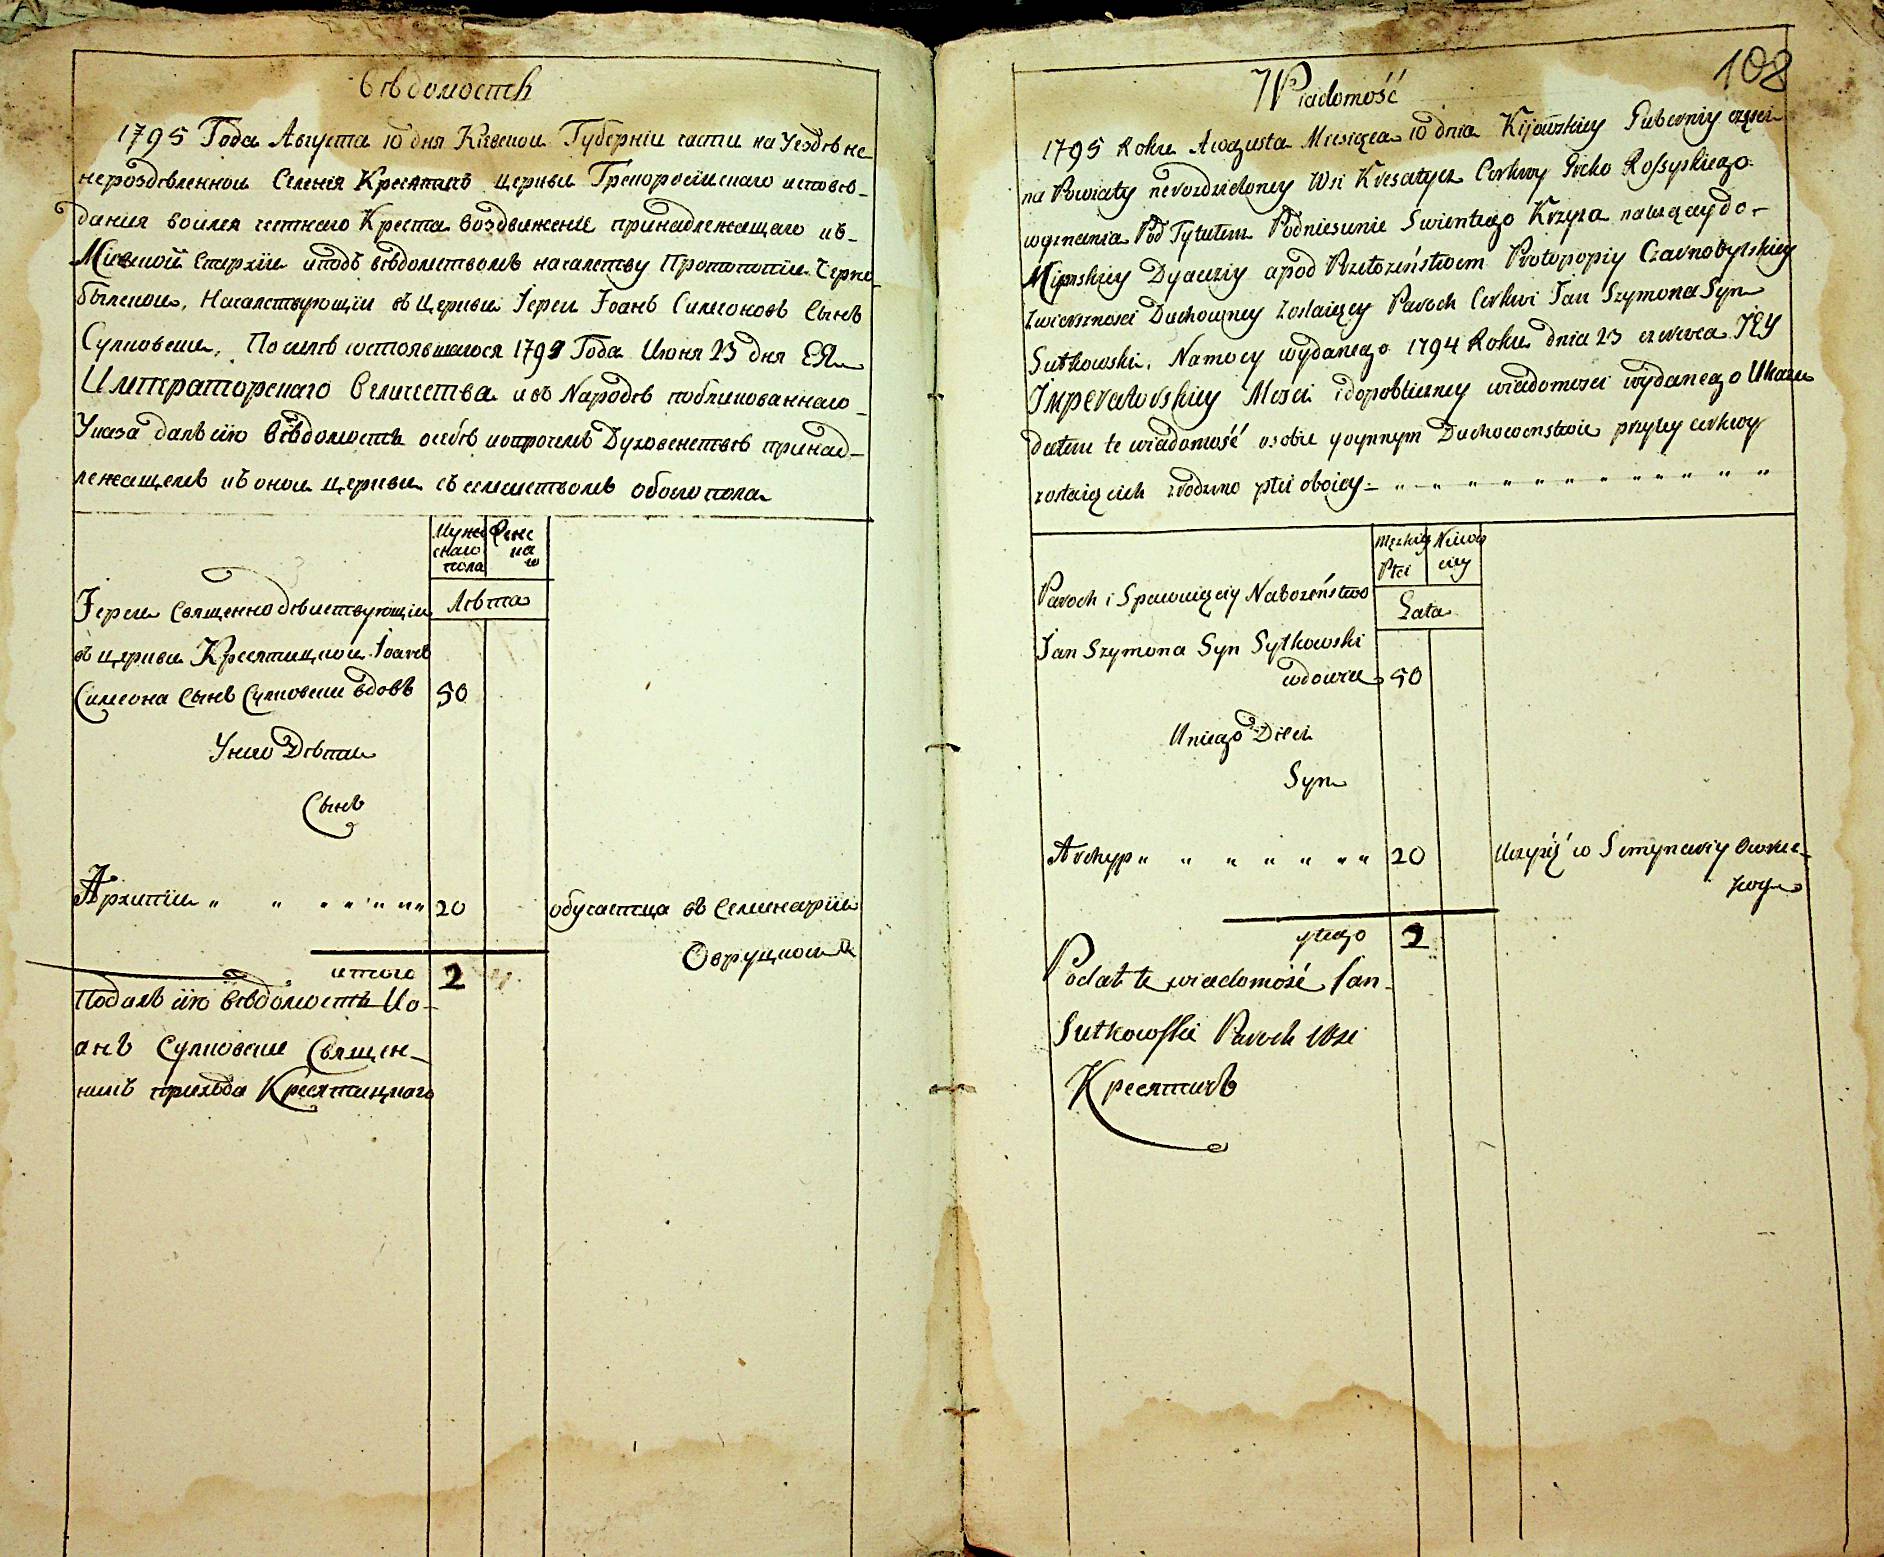 Вѣдомость
1795 Года Августа 10 дня Кіевскои Губерніи части на Уездъ не
нероздѣленнои Селенія Кресятичъ церкви Грекоросіискаго исповѣ-
данія воимя честнаго Креста воздвиженіе принадлежащаго къ-
Минской Епархіи иподъ вѣдомствомъ началству Протопопіи Черно-
былскои, Началствующіи въ Церкви Іереи Іоанъ Симеоновъ Сынъ
Сулковски, Посилѣ состоявшагося 1794 Года Июня 23 дня ЕЯ
Императорскаго Величества ивъ Народѣ публикованнаго
Указа далъ сію Вѣдомость особѣ ипротчемъ Духовенствѣ принад-
лежащемъ къ онои церкви съ семействомъ обоего пола
Мужескаго пола
Женскаго
Лѣта
Іереи Священнодѣиствующіи
въ церкви Кресятицкои Іоанъ
Симеона Сынъ Сулковски вдовъ 50
Унего Дѣти
Сынъ
Архипіи " " " " " " " 20 обучаетца въ Семинаріи
Овруцкой
итого 2
Подалъ сію вѣдомость Ио-
анъ Сулковски Священ-
никъ прихода Кресятицкаго
108
Wiadomość
1795 Roku Awgusta Miesięca 10 dnia Kijowskiey Guberniy części
na Powiaty nerozdzieloney Wsi Kresatycz Cerkwy Greko Rossyskiego
wyznania Pod Tytułem Podniesienie Swientego Krzyza nalezącey do-
Minskiey Dyaeziy apod Przełozeństwem Protopopiy Czarnobylskiey
Zwierzności Duchowney zostaiący Paroch Cerkwi Jan Szymona Syn
Sutkowski. Namocy wydanego 1794 Roku dnia 23 czerwca JEY
Imperatorskiey Mosci idopobliczney wiadomosci wydanego Ukazu
dałem te wiadomość osobie yoynnym Duchowenstwie przytey cerkwy
zostaiących zrodzino płci oboiey - " " " " " " " " " " " "
Męzkiey Płci
Niewieściey
Lata
Paroch i Sprawuięciy Nabożeństwo
Jan Szymona Syn Sytkowski
wdowiec 50
Uniego Dzieci
Syn
Archyp " " " " " " " 20 Uczyść w Semynariy Owruc-
koy
ytego 2
Podał te wiadomość Jan
Sutkowski Paroch Wsi
Кресятичъ